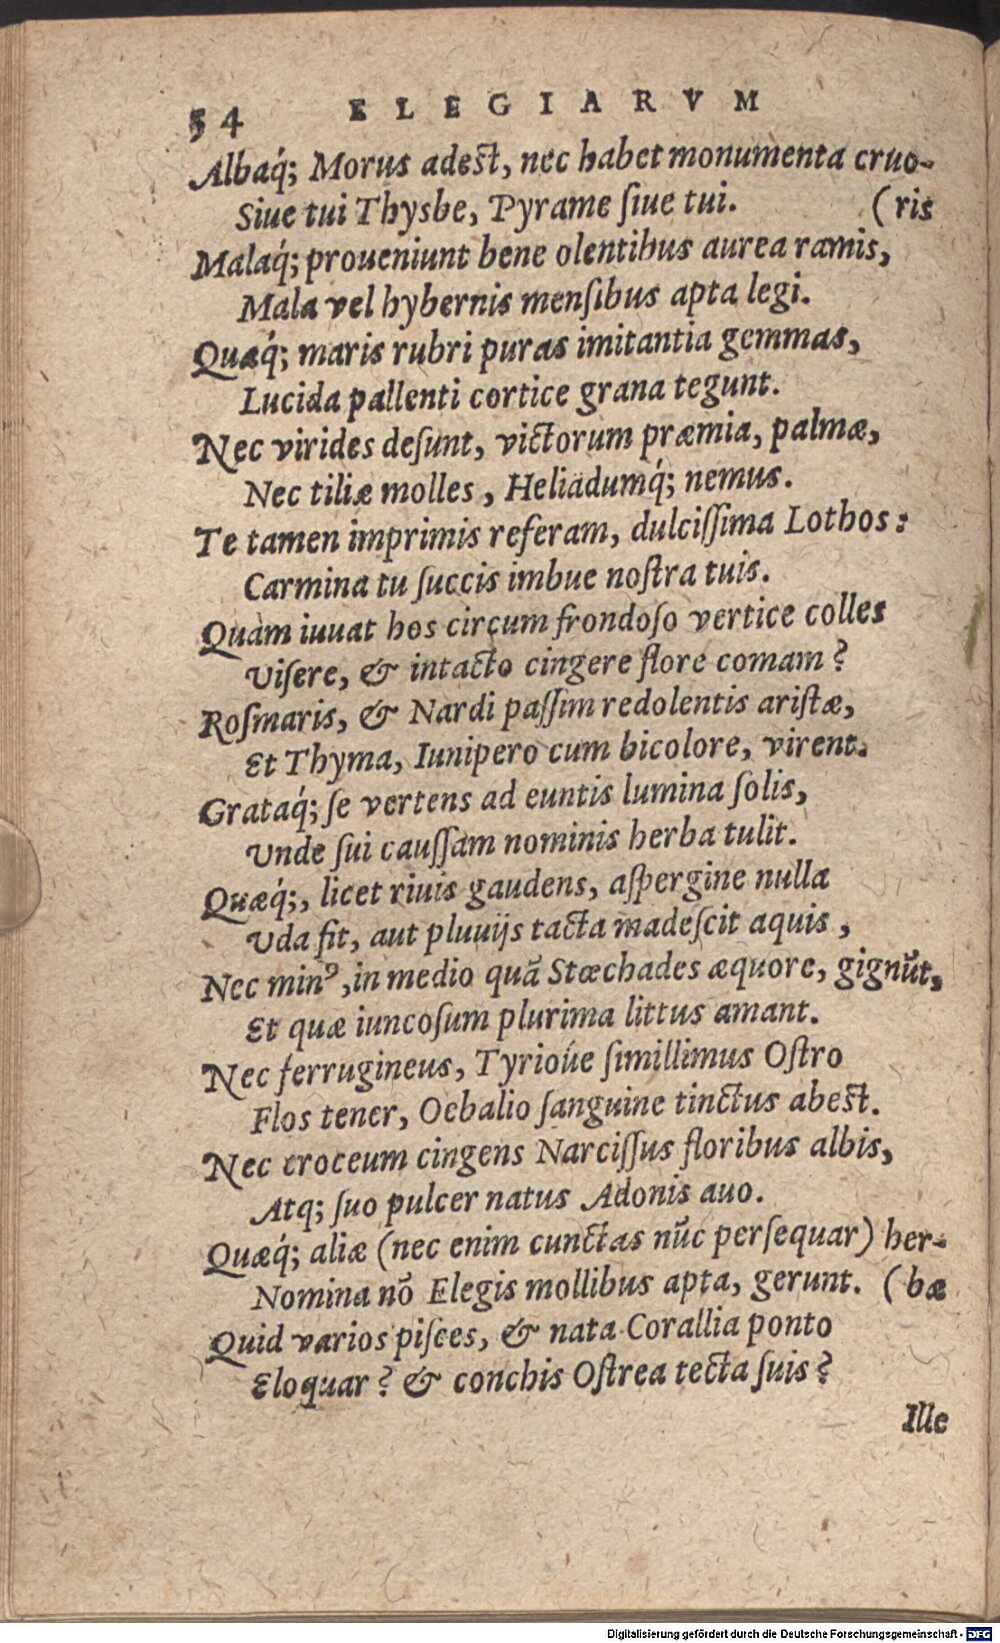 54 ELEGIARVM
Albaq́; Morus adest, nec habet monumenta cruo-
Siue tui Thysbe, Pyrame ſiue tui. (ris
Malaq́; proueniunt bene olentibus aurea ramis,
Mala vel hybernis menſibus apta legi.
Quæq́; maris rubri puras imitantia gemmas,
Lucida pallenti cortice grana tegunt.
Nec virides deſunt, victorum præmia, palmæ,
Nec tiliæ molles, Heliadumq́; nemus.
Te tamen imprimis referam, dulciſſima Lothos:
Carmina tu ſuccis imbue noſtra tuis.
Quàm iuuat hos circum frondoſo vertice colles
Viſere, & intacto cingere flore comam?
Roſmaris, & Nardi paſſim redolentis ariſtæ,
Et Thyma, Iunipero cum bicolore, virent.
Grataq́; ſe vertens ad euntis lumina ſolis,
Vnde ſui cauſſam nominis herba tulit.
Quæq́;, licet riuis gaudens, aſpergine nulla
Vda fit, aut pluuijs tacta madeſcit aquis,
Nec minꝰ, in medio quã Stœchades æquore, gignũt,
Et quæ iuncoſum plurima littus amant.
Nec ferrugineus, Tyrioúe ſimillimus Oſtro
Flos tener, Oebalio ſanguine tinctus abest.
Nec croceum cingens Narciſſus floribus albis,
Atq; ſuo pulcer natus Adonis auo.
Quæq́; aliæ (nec enim cunctas nũc perſequar) her-
Nomina nõ Elegis mollibus apta, gerunt. (bæ
Quid varios piſces, & nata Corallia ponto
Eloquar? & conchis Oſtrea tecta ſuis?
Ille
Digitalisierung gefördert durch die Deutsche Forschungsgemeinschaft - DFG